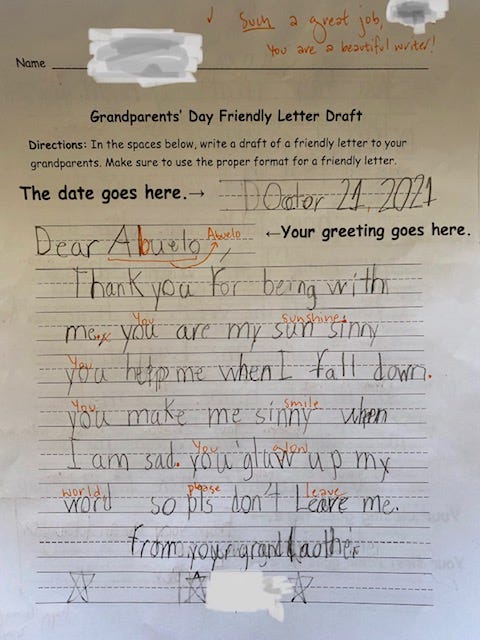 ✓ Such a great job,
You are a beautiful writer!
Name
Grandparents' Day Friendly Letter Draft
Directions: In the spaces below, write a draft of a friendly letter to your
grandparents. Make sure to use the proper format for a friendly letter.
The date goes here.→ Octor 21, 2021
Dear Abuelo, Abuelo ←Your greeting goes here.
Thank you for being with
You sunshine.
me. you are my sun sinny
You
you help me when I fall down.
You smile
you make me sinny when
You glow
I am sad. you gluw up my
world please leave
word so pls don't Leave me.
from your grand daother